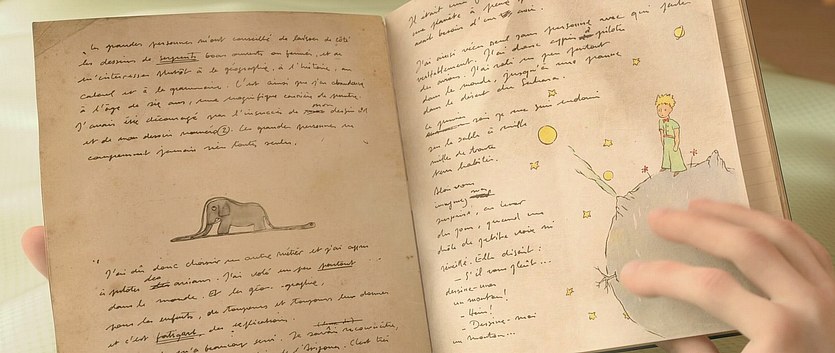 Les grandes personnes m'ont conseillé de laisser de côté
les dessins de serpents boas ouverts ou fermés, et de
m'intéresser plutôt à la géographie, à l'histoire, au
calcul et à la grammaire. C'est ainsi que j'ai abandonné
à l'âge de six ans, une magnifique carrière de peintre.
J'avais été découragé par l'insuccès de mon dessin n°1
et de mon dessin numéro 2. Les grandes personnes ne
comprennent jamais rien toutes seules.
J'ai dû donc choisir un autre métier et j'ai appris
à piloter des avions. J'ai volé un peu partout
dans le monde. Et la géographie,
pour les enfants, de toujours et toujours leur donner
et c'est fatigant, des explications.
m'a beaucoup servi. Je savais reconnaître,
Il était une
une planète à peine
avait besoin d'un
J'ai ainsi vécu seul sans personne avec qui parler
véritablement. J'ai donc appris à piloter
des avions. J'ai volé un peu partout
dans le monde, jusqu'à une panne
dans le désert du Sahara.
Le premier soir je me suis endormi
sur le sable à mille
milles de toute
terre habitée.
Alors vous
imaginez ma
surprise, au lever
du jour, quand une
drôle de petite voix m'a
réveillé. Elle disait :
- S'il vous plaît...
dessine-moi
un mouton !
- Hein !
- Dessine-moi
un mouton...